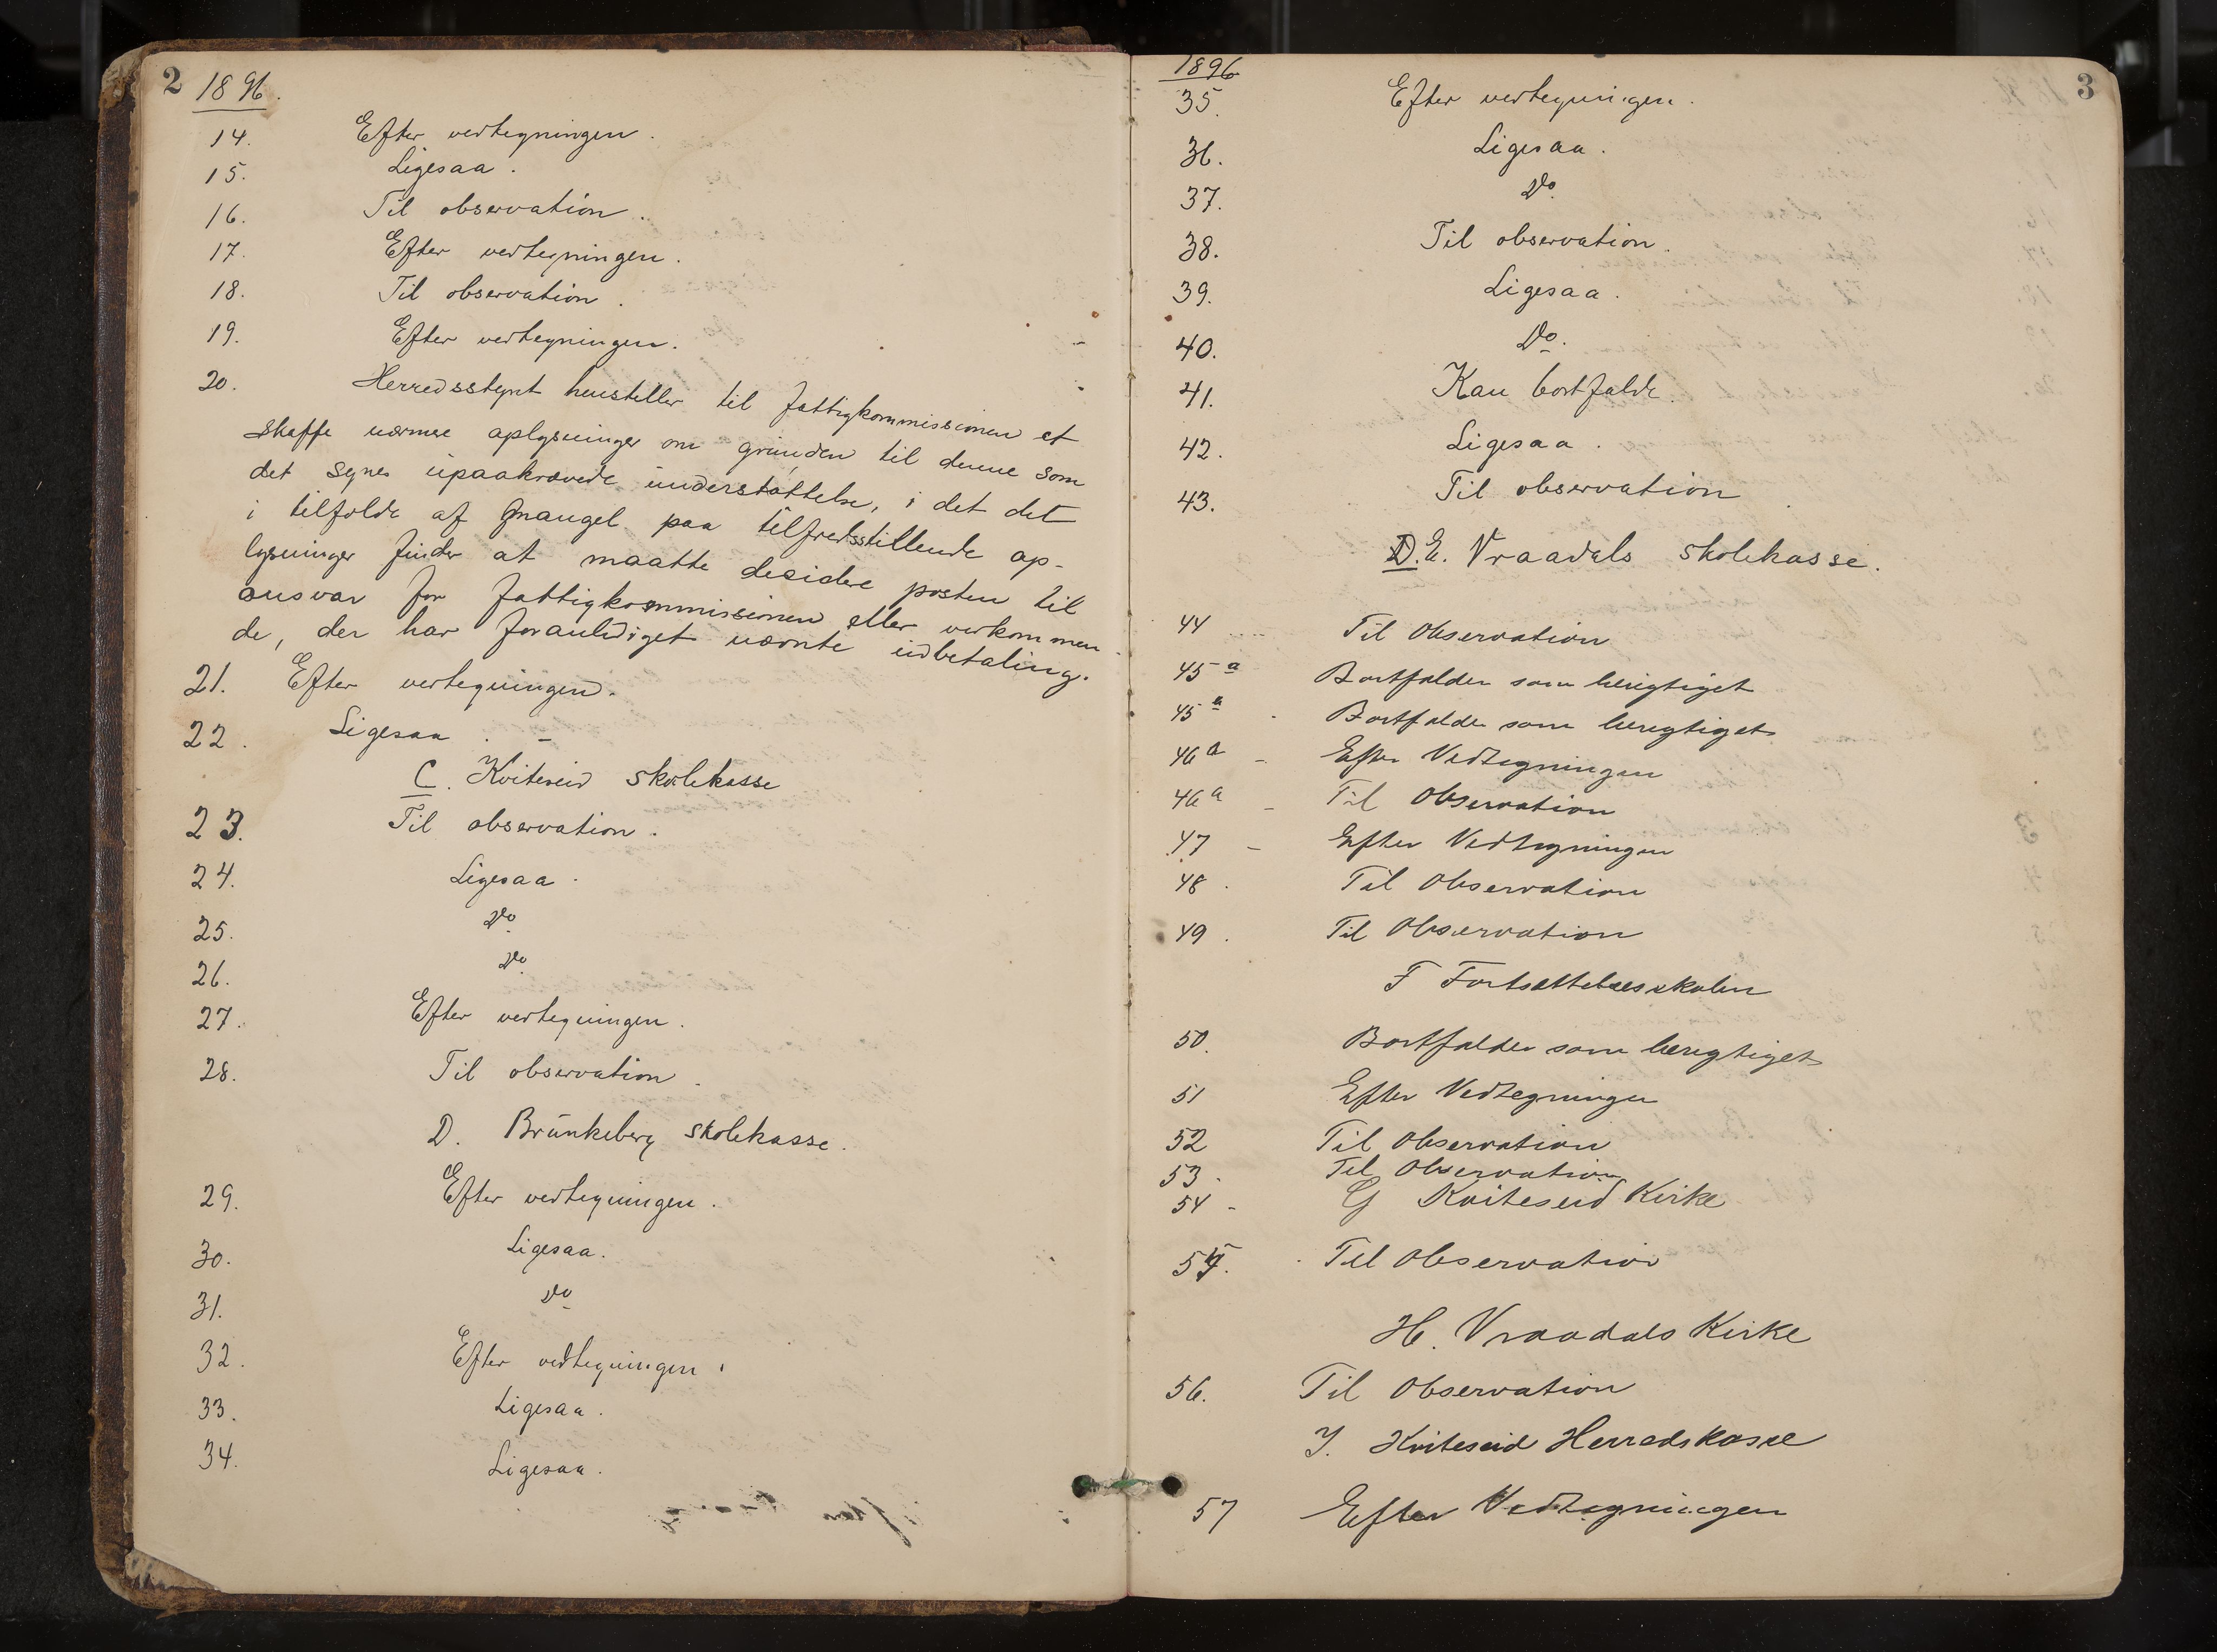 2 1896.
14. Efter vedtegningen.
15. Ligesaa.
16. Til observation.
17. Efter vedtegningen.
18. Til observation.
19. Efter vedtegningen.
20. Herredsstyret henstiller til fattigkommissionen at
skaffe nærmere oplysninger om grunden til denne som
det synes upaakrævede understøttelse, i det det
i tilfælde af mangel paa tilfredsstillende op-
lysninger finder at maatte decidere posten til
ansvar for fattigkommissionen eller vedkommen-
de, der har foranlediget nævnte udbetaling.
21. Efter vedtegningen.
22. Ligesaa.
C. Kviteseid skolekasse
23. Til observation.
24. Ligesaa.
25. Do
26. Do
27. Efter vedtegningen.
28. Til observation.
D. Brunkeberg skolekasse.
29. Efter vedtegningen.
30. Ligesaa.
31. Do
32. Efter vedtegningen.
33. Ligesaa.
34. Ligesaa.
1896 3
35. Efter vedtegningen.
36. Ligesaa.
37. Do
38. Til observation.
39. Ligesaa.
40. Do.
41. Kan bortfalde.
42. Ligesaa.
43. Til observation
E. Vraadals skolekasse.
44 Til Observation
45 a Bortfalder som berigtiget
45 a Bortfalder som berigtiget
46 a - Efter Vedtegningen
46 a - Til Observation
47 - Efter Vedtegningen
48. Til Observation
49. Til Observation
F Fortsættelsesskolen
50. Bortfalder som berigtiget
51 Efter Vedtegningen
52 Til Observation
53. Til Observation
54 - G Kviteseid Kirke
55. Til Observation
H. Vraadals Kirke
56. Til Observation
I. Kviteseid Herredskasse
57 Efter Vedtegningen